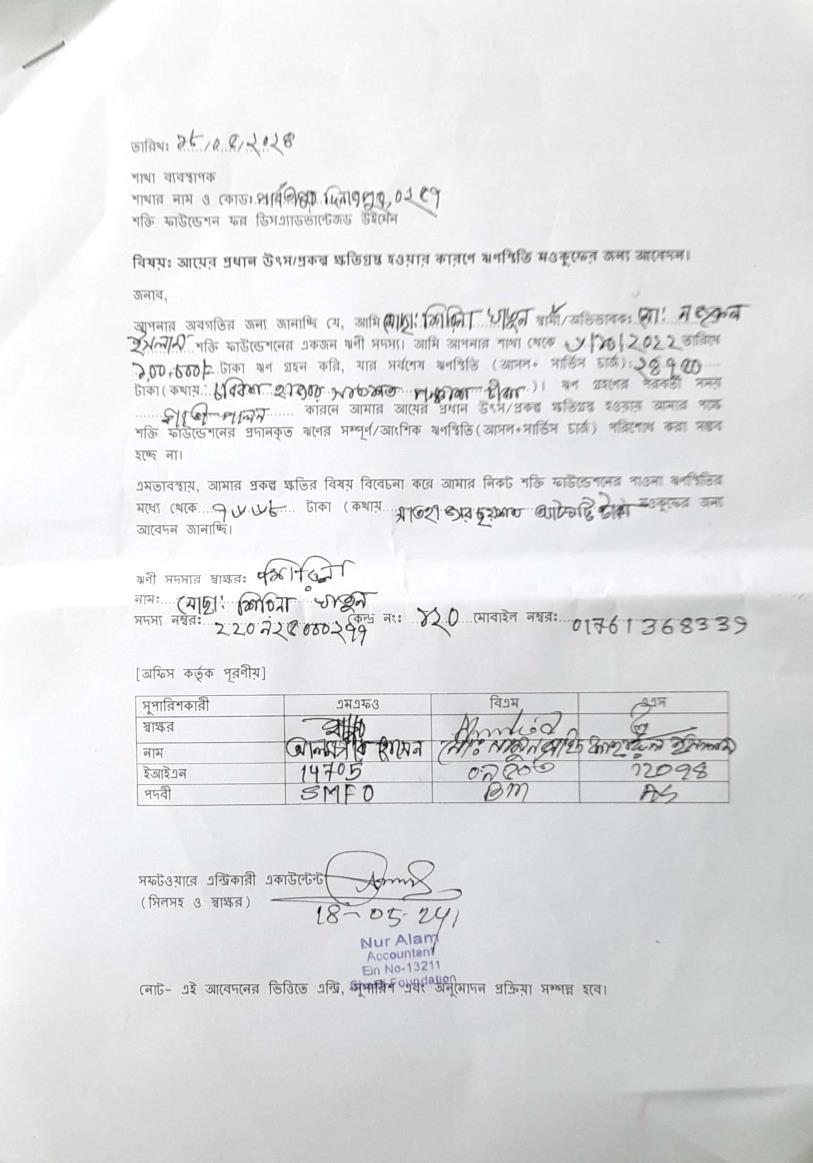 তারিখঃ ১৮/০৫/২০২৪
শাখা ব্যবস্থাপক
শাখার নাম ও কোডঃ পার্বতীপুর দিনাজপুর,
শক্তি ফাউন্ডেশন ফর ডিসএ্যাডভান্টেজড উইমেন
বিষয়ঃ আয়ের প্রধান উৎস/প্রকল্প ক্ষতিগ্রস্ত হওয়ার কারণে ঋণস্থিতি মওকুফের জন্য আবেদন।
জনাব,
আপনার অবগতির জন্য জানাচ্ছি যে, আমি মোছাঃ শিরিনা খাতুন স্বামী/অভিভাবকঃ মোঃ
ইসলাম শক্তি ফাউন্ডেশনের একজন ঋণী সদস্য। আমি আপনার শাখা থেকে তারিখে
১,০০,০০০/= টাকা ঋণ গ্রহন করি, যার সর্বশেষ ঋণস্থিতি (আসল+ সার্ভিস চার্জ):
টাকা (কথায়ঃ চব্বিশ হাজার সাতশত পঞ্চাশ টাকা )। ঋণ গ্রহনের পরবর্তী সময়
পালন কারনে আমার আয়ের প্রধান উৎস/প্রকল্প ক্ষতিগ্রস্ত হওয়ায় আমার পক্ষে
শক্তি ফাউন্ডেশনের প্রদানকৃত ঋণের সম্পূর্ণ/আংশিক ঋণস্থিতি(আসল+সার্ভিস চার্জ) পরিশোধ করা সম্ভব
হচ্ছে না।
এমতাবস্থায়, আমার প্রকল্প ক্ষতির বিষয় বিবেচনা করে আমার নিকট শক্তি ফাউন্ডেশনের পাওনা ঋণস্থিতির
মধ্যে থেকে ৭৬৬৮ টাকা (কথায় সাত হাজার ছয়শত আটষট্টি টাকা মওকুফের জন্য
আবেদন জানাচ্ছি।
ঋণী সদস্যর স্বাক্ষরঃ শিরিনা
নামঃ মোছাঃ শিরিনা খাতুন
সদস্য নম্বরঃ কেন্দ্র নংঃ মোবাইল নম্বরঃ 01761368339
[অফিস কর্তৃক পূরণীয়]
সুপারিশকারী এমএফও বিএম এএস
স্বাক্ষর
নাম
ইআইএন 14705
পদবী SMFO BM AS
সফটওয়ারে এন্ট্রিকারী একাউন্টেন্ট
(সিলসহ ও স্বাক্ষর)
18-05-24
Nur Alam
Accountant
Ein No-13211
Foundation
নোট- এই আবেদনের ভিত্তিতে এন্ট্রি, সুপারিশ এবং অনুমোদন প্রক্রিয়া সম্পন্ন হবে।